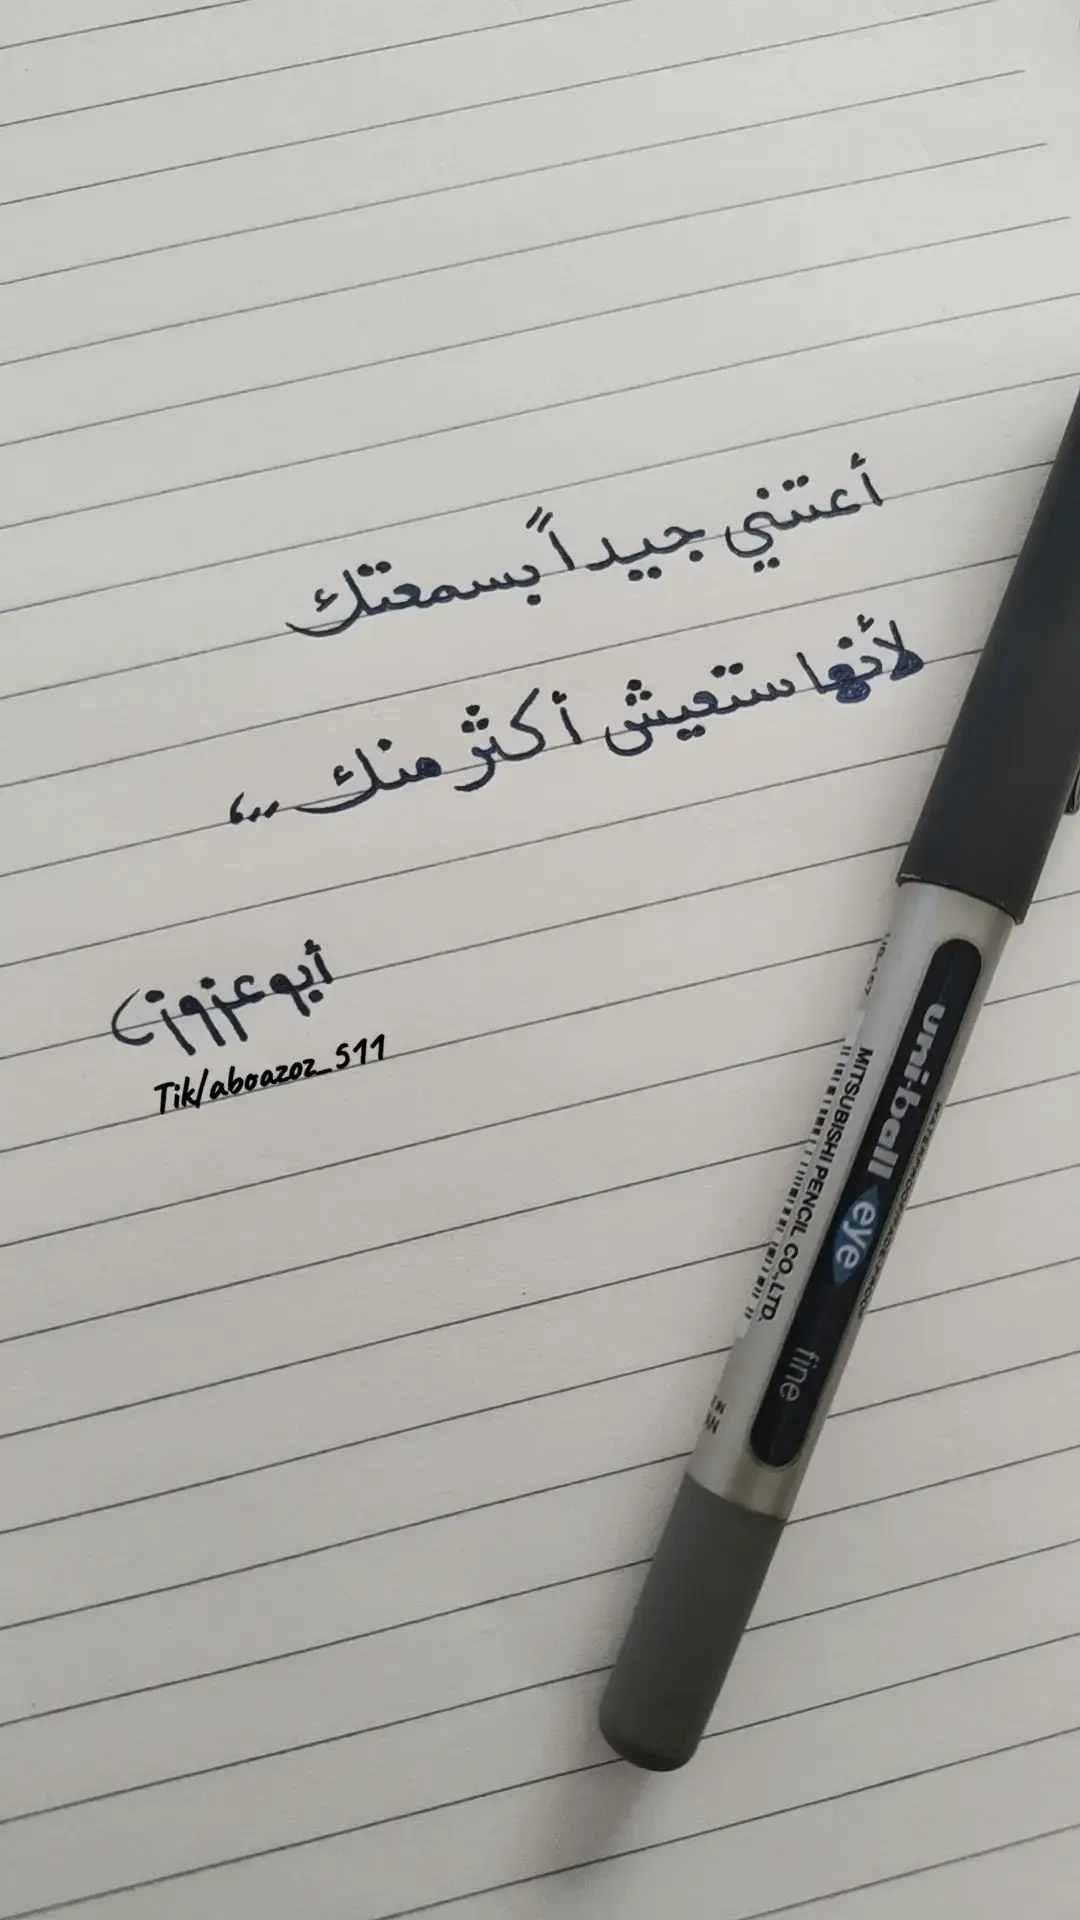 أعتني جيداً بسمعتك
لأنها ستعيش أكثر منك ,,,
أبو عزوز
Tik/aboazoz_511
uni-ball eye fine
MITSUBISHI PENCIL CO.,LTD.
UB-157